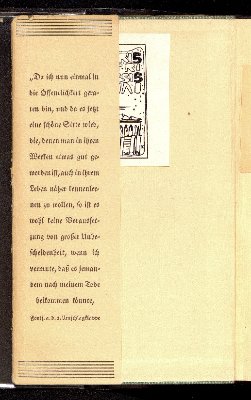 „Da ich nun einmal in
die Öffentlichkeit gera-
ten bin, und da es jetzt
eine schöne Sitte wird,
die, denen man in ihren
Werken etwas gut ge-
worden ist, auch in ihrem
Leben näher kennenler-
nen zu wollen, so ist es
wohl keine Vorausset-
zung von großer Unbe-
scheidenheit, wenn ich
vermute, daß es jeman-
dem nach meinem Tode
beikommen könnte,
Forts. a. d. 2. Umschlagklappe